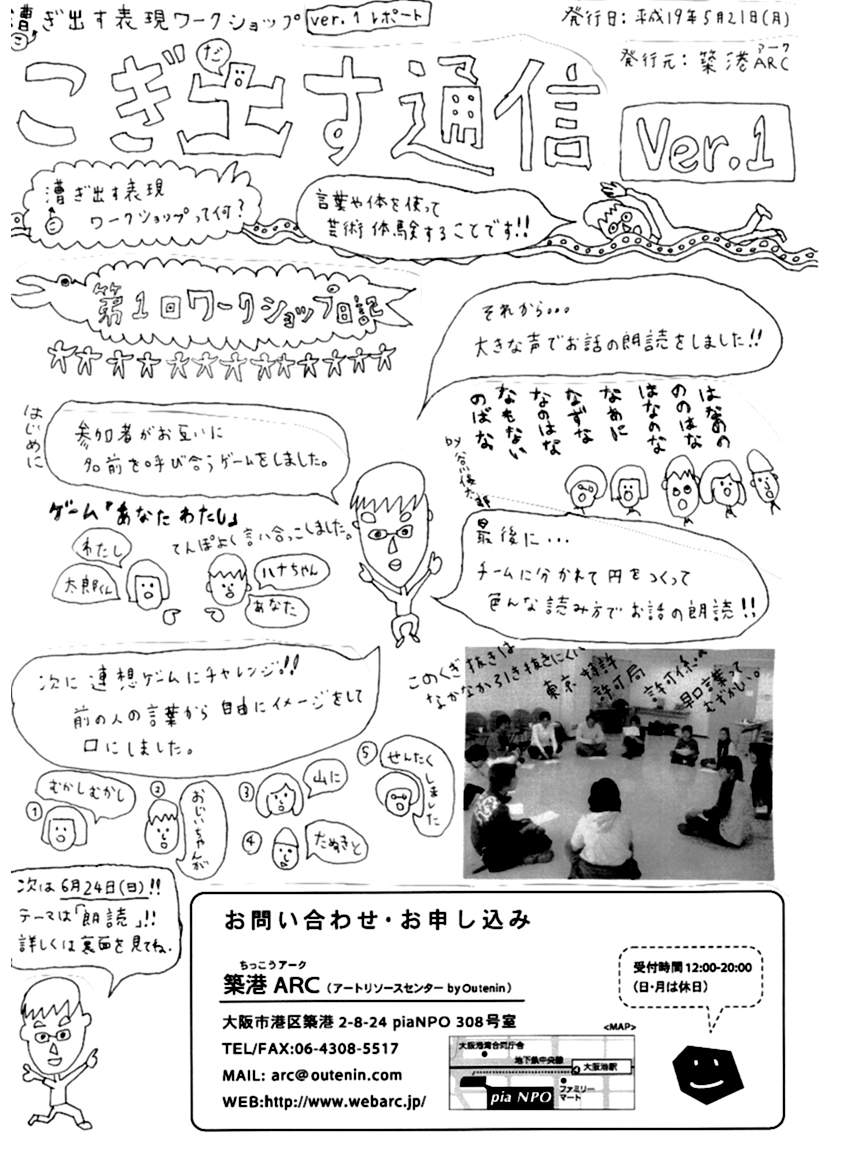 漕ぎ出す表現ワークショップ ver.1 レポート
こ
発行日：平成19年5月21日(月)
発行元：築港ARC
アーク
こぎ出す通信
だ
Ver.1
漕ぎ出す表現
こ
ワークショップって何？
言葉や体を使って
芸術体験することです!!
第1回ワークショップ日記
はじめに
参加者がお互いに
名前を呼び合うゲームをしました。
ゲーム『あなた わたし』
てんぽよく言い合っこしました。
わたし
太郎くん
ハナちゃん
あなた
次に連想ゲームにチャレンジ!!
前の人の言葉から自由にイメージをして
口にしました。
①
むかしむかし
②
おじいちゃんが
③
山に
④
たぬきと
⑤
せんたくしました
それから・・・
大きな声でお話の朗読をしました!!
はなののの
ののはな
はなのな
なあに
なずな
なのはな
なもない
のばな
by谷川俊太郎
最後に・・・
チームに分かれて円をつくって
色んな読み方でお話の朗読!!
このくぎ抜きは
なかなか引き抜きにくい
東京特許
許可局
許可係の
早口言葉って
むずかしい。
次は6月24日(日)!!
テーマは「朗読」!!
詳しくは裏面を見てね.
お問い合わせ・お申し込み
ちっこうアーク
築港 ARC（アートリソースセンター by Outenin）
大阪市港区築港 2-8-24 piaNPO 308号室
TEL/FAX:06-4308-5517
MAIL: arc@outenin.com
WEB:http://www.webarc.jp/
受付時間 12:00-20:00
（日・月は休日）
<MAP>
大阪港湾合同庁舎
地下鉄中央線
大阪港駅
ファミリー
マート
pia NPO